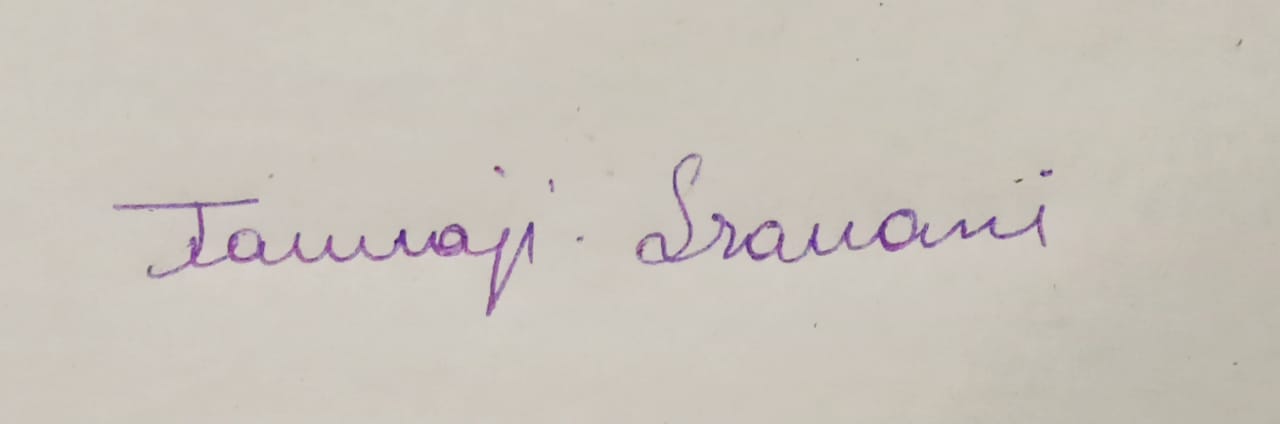 Tammaji. Sravani